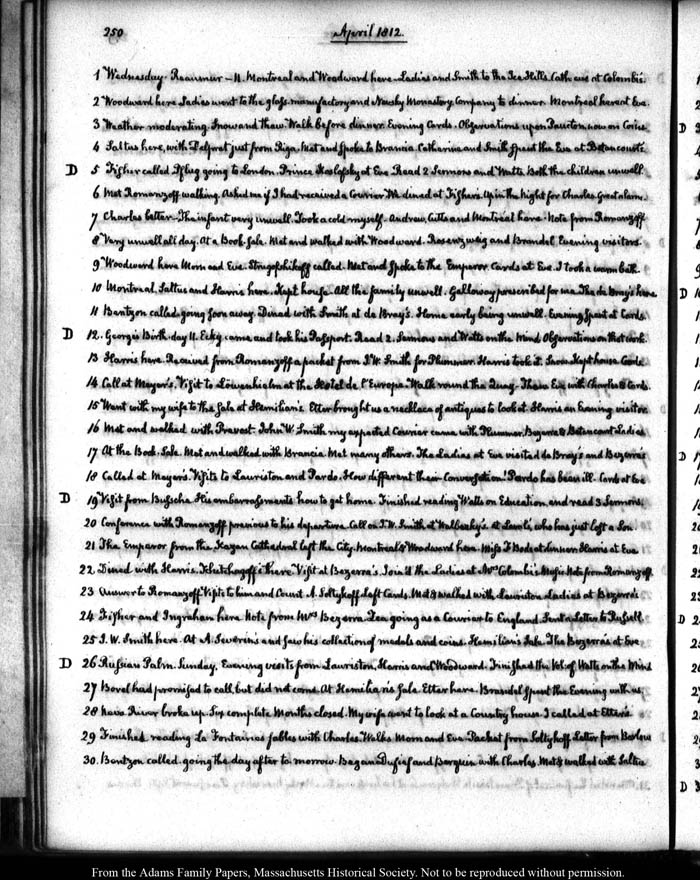 250
April 1812.
1 Wednesday. Reaumur – 11. Montreal and Woodward here. Ladies and Smith to the Ice Hills. Cath. eve at Colombi's.
2 Woodward here. Ladies went to the glass manufactory and Newsky Monastery. Company to dinner. Montreal here at Eve.
3 Weather moderating. Snow and thaw. Walk before dinner. Evening Cards. Observations upon Paucton now on Coins.
4 Saltus here, with Dalpret just from Riga. Met and Spoke to Brancia. Catharine and Smith Spent the Eve at Betancourt's.
D 5 Fisher called. Pflug going to London. Prince Koslofsky at Eve. Read 2 Sermons and Watts. Both the children unwell.
6 Met Romanzoff walking. Asked me if I had received a Courier. We dined at Fisher's. Up in the night for Charles. Great alarm.
7 Charles better. The infant very unwell. Took a cold myself. Andrew, Gitts and Montreal here. Note from Romanzoff
8 Very unwell all day. At a Book Sale. Met and walked with Woodward. Rosenzweig and Brandel Evening visitors.
9 Woodward here Morn and Eve. Strugofshikoff called. Met and Spoke to the Emperor. Cards at Eve. I took a warm bath.
10 Montreal, Saltus and Harris here. Kept house. All the family unwell. Galloway prescribed for me. The de Bray's here.
11 Bentzon called: going soon away. Dined with Smith at de Bray's. Home early being unwell. Evening Spent at Cards.
D 12. George's Birth-day 11. Ecky came and took his Passport. Read 2. Sermons and Watts on the Mind. Observations on that work.
13 Harris here. Received from Romanzoff a packet from J. W. Smith for Plummer. Harris took it. Snow. Kept house. Cards.
14 Call at Meyer's. Visit to Löwenhielm at the Hotel de l'Europe. Walk round the Quay. Thaw. Eve with Charles & Cards.
15 Went with my wife to the Sale at Hemilian's. Etter brought us a necklace of antiques to look at. Harris an Evening visitor.
16 Met and walked with Prevost. John W. Smith my expected Courier came with Plummer. Bezerra & Betancourt Ladies
17 At the Book Sale. Met and walked with Brancia. Met many others. The Ladies at Eve visited de Bray's and Bezerra's
18 Called at Meyer's. Visits to Lauriston and Pardo. How different their Conversation! Pardo has been ill. Cards at Eve
D 19 Visit from Bussche. His embarrassments how to get home. Finished reading Watts on Education, and read 3 Sermons.
20 Conference with Romanzoff previous to his departure. Call on J. W. Smith at Wulbasky's. at Lewis's, who has just lost a Son
21 The Emperor from the Kazan Cathedral left the City. Montreal & Woodward here. Miss F Bode at dinner. Harris at Eve
22. Dined with Harris. Tchitchagoff there. Visit at Bezerra's. Join'd the Ladies at Mrs Colombi's. Music. Note from Romanzoff.
23 Answer to Romanzoff. Visits to him and Count A. Soltykoff. Left Cards. Met & walked with Lauriston. Ladies at Bezerra's
24 Fisher and Ingraham here. Note from Mrs Bezerra. Lea going as a Courier to England. Sent a Letter to Russell.
25 J. W. Smith here. At A. Severin's and saw his collection of medals and coins. Hemilian's Sale. The Bezerra's at Eve
D 26 Russian Palm. Sunday. Evening visits from Lauriston, Harris and Woodward. Finished the Vol: of Watts on the Mind
27 Borel had promised to call, but did not come. At Hemilian's Sale. Etter here. Brandel Spent the Evening with us.
28 Neva River broke up. Six complete Months closed. My wife went to look at a Country house. I called at Etter's
29 Finished reading La Fontaines fables with Charles. Walks Morn and Eve. Packet from Soltykoff. Letter from Barlow
30. Bentzon called. going the day after to morrow. Began Dufief and Berquin with Charles. Met & walked with Saltus
D
D
D
D
D
From the Adams Family Papers, Massachusetts Historical Society. Not to be reproduced without permission.